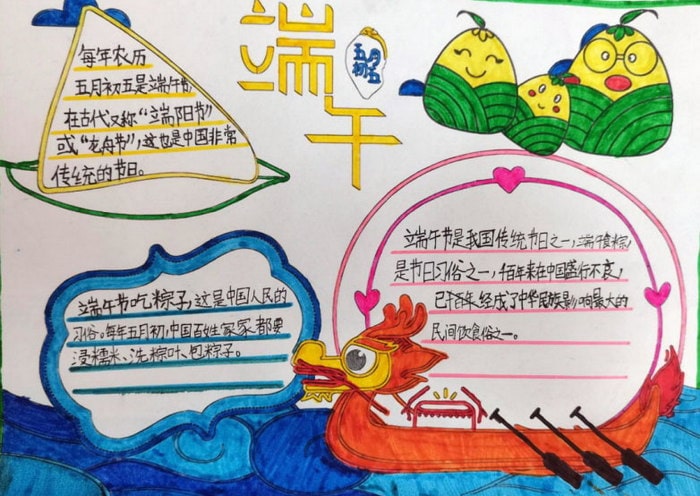 端午
五月
初五
每年农历
五月初五是端午节,
在古代又称“端阳节”
或“龙舟节”,这也是中国非常
传统的节日。
端午节是我国传统节日之一,端午食粽,
是节日习俗之一,千百年来在中国盛行不衰,
已千百年,经成了中华民族影响最大的
民间饮食俗之一。
端午节吃粽子,这是中国人民的
习俗。每年五月初,中国百姓家家都要
浸糯米、洗粽叶、包粽子。